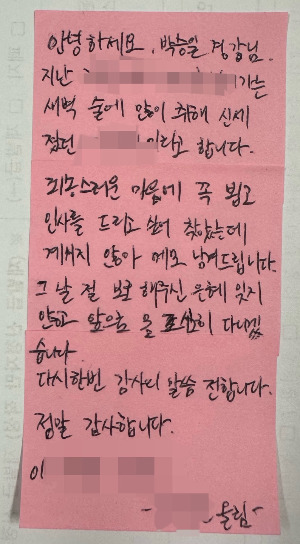 안녕하세요, 박승일 경감님.
지난 기는
새벽 술에 많이 취해 신세
졌던 이라고 합니다.
죄송스러운 마음에 꼭 뵙고
인사를 드리고 싶어 찾았는데
계시지 않아 메모 남겨드립니다.
그 날 절 보호해주신 은혜 잊지
않고 앞으로 몸 조심히 다니겠
습니다.
다시한번 감사의 말씀 전합니다.
정말 감사합니다.
이
- 올림-